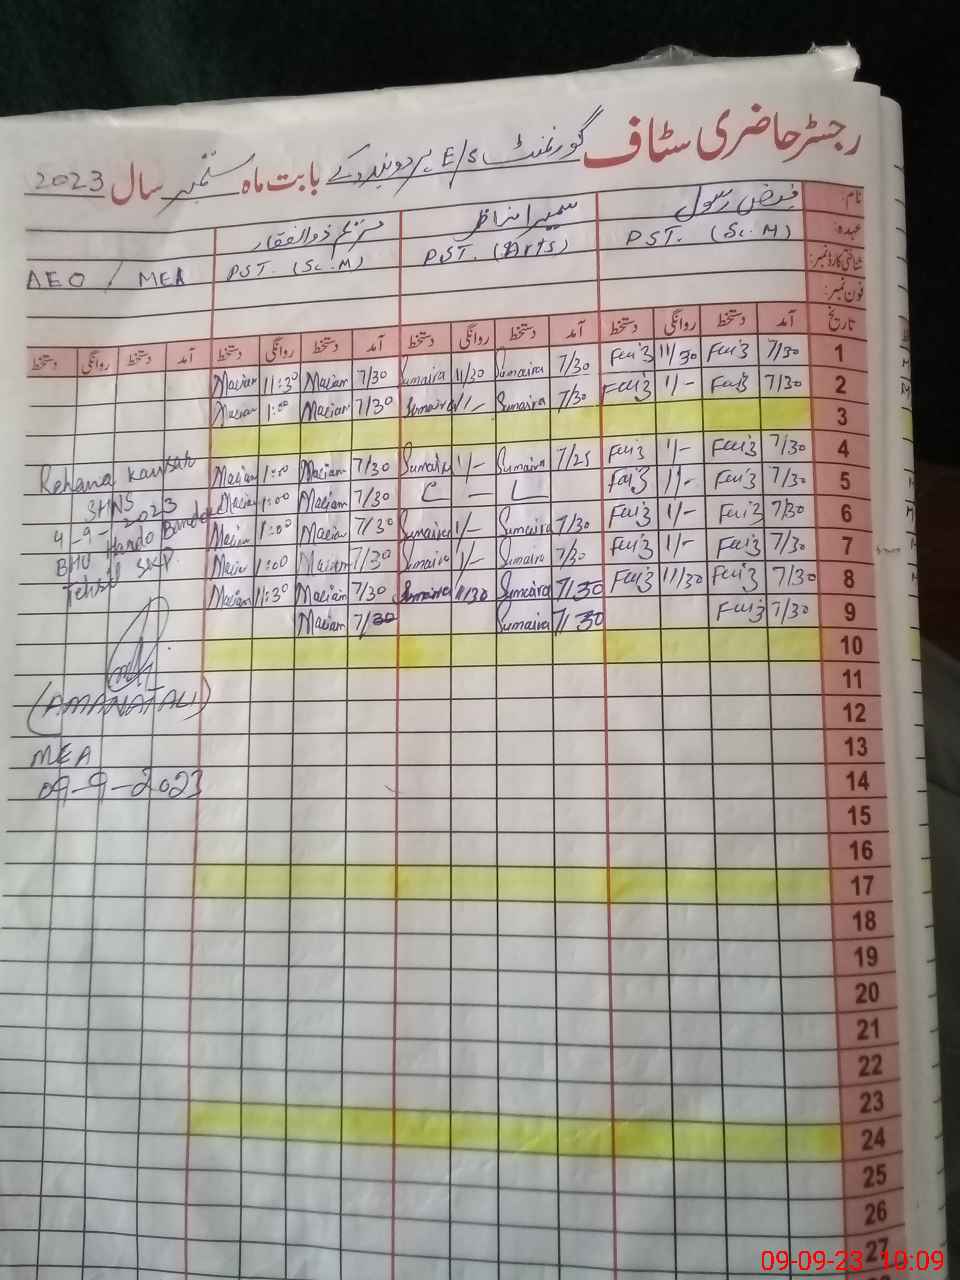 رجسٹر حاضری سٹاف گورنمنٹ E/S ہردو نبیرد کے بابت ماہ ستمبر سال 2023
نام: فیض رسول سمیرا نذاں مریم ذوالفقار
عہدہ: PST. (Sc.M) PST. (Arts) PST. (Sc.M) AEO / MEA
شناختی کارڈ نمبر:
فون نمبر:
تاریخ آمد دستخط روانگی دستخط آمد دستخط روانگی دستخط آمد دستخط روانگی دستخط آمد دستخط روانگی دستخط
Mariam 11:30 Mariam 7/30 Sumaira 11/30 Sumaira 7/30 Faiz 11/30 Faiz 7/30 1
Mariam 1:00 Mariam 7/30 Sumaira 1/- Sumaira 7/30 Faiz 1/- Faiz 7/30 2
3
Rehana Kausar Mariam 1:00 Mariam 7/30 Sumaira 1/- Sumaira 7/25 Faiz 1/- Faiz 7/30 4
SHNS Mariam 1:00 Mariam 7/30 C — L Faiz 1/- Faiz 7/30 5
4-9-2023 Mariam 1:00 Mariam 7/30 Sumaira 1/- Sumaira 7/30 Faiz 1/- Faiz 7/30 6
BHU Hando Mariam 1:00 Mariam 7/30 Sumaira 1/- Sumaira 7/30 Faiz 1/- Faiz 7/30 7
Tehsil SKP. Mariam 11:30 Mariam 7/30 Sumaira 11/30 Sumaira 7/30 Faiz 11/30 Faiz 7/30 8
Mariam 7/30 Sumaira 7/30 Faiz 7/30 9
10
(AMANAT ALI) 11
12
MEA 13
09-9-2023 14
15
16
17
18
19
20
21
22
23
24
25
26
27
09-09-23 10:09